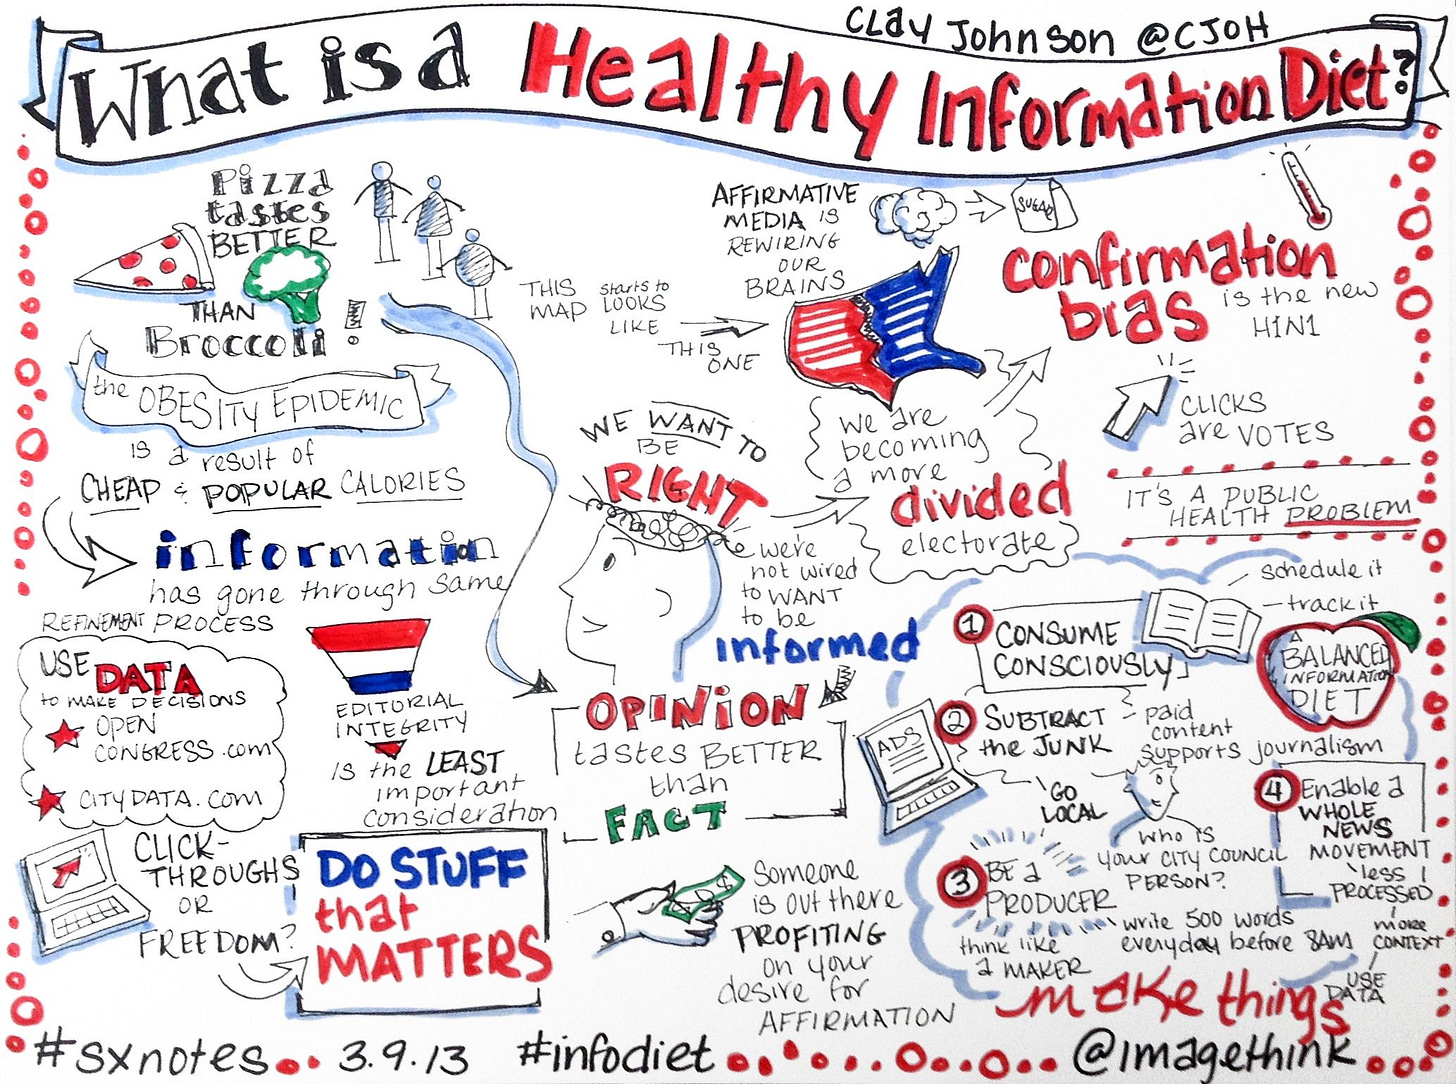 Clay Johnson @CJOH
What is a Healthy Information Diet?
Pizza
tastes
BETTER
THAN
Broccoli!
the OBESITY EPIDEMIC
is a result of
CHEAP & POPULAR CALORIES
information
has gone through same
REFINEMENT PROCESS
USE DATA
to MAKE DECISIONS
OPEN
CONGRESS.com
CITYDATA.com
EDITORIAL
INTEGRITY
is the LEAST
important
consideration
CLICK-
THROUGHS
OR
FREEDOM?
DO STUFF
that
MATTERS
AFFIRMATIVE
MEDIA is
REWIRING
OUR
BRAINS
SUGAR
THIS
MAP
starts to
LOOKS
LIKE
THIS
ONE
confirmation
bias
is the new
H1N1
CLICKS
are VOTES
IT'S A PUBLIC
HEALTH PROBLEM
we are
becoming
a more
divided
electorate
WE WANT TO
BE
RIGHT
we're
not wired
to WANT
to be
informed
OPINION
tastes BETTER
than
FACT
Someone
is out there
PROFITING
on your
desire for
AFFIRMATION
A
BALANCED
INFORMATION
DIET
1 CONSUME
CONSCIOUSLY
schedule it
track it
2 SUBTRACT
the JUNK
ADS
paid
content
supports journalism
GO
LOCAL
who is
your CITY COUNCIL
PERSON?
3 BE a
PRODUCER
think like
a MAKER
write 500 words
everyday before 8AM
4 Enable a
WHOLE
NEWS
MOVEMENT
less
PROCESSED
more
CONTEXT
USE
DATA
make things
#sxnotes
3.9.13
#infodiet
@imagethink